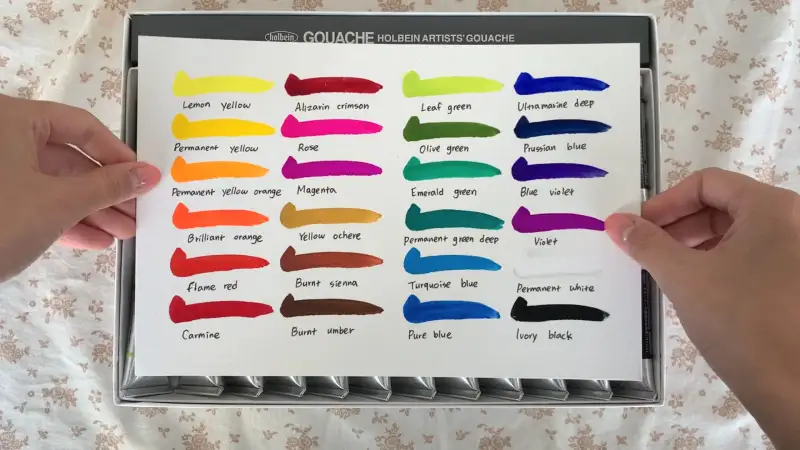 holbein GOUACHE HOLBEIN ARTISTS' GOUACHE
Lemon yellow
Permanent yellow
Permanent yellow orange
Brilliant orange
Flame red
Carmine
Alizarin crimson
Rose
Magenta
Yellow ochere
Burnt sienna
Burnt umber
Leaf green
Olive green
Emerald green
Permanent green deep
Turquoise blue
Pure blue
Ultramarine deep
Prussian blue
Blue violet
Violet
Permanent white
Ivory black